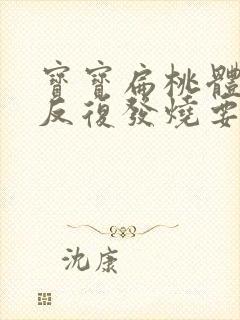 寶寶扁桃體
反復發燒要
沈康